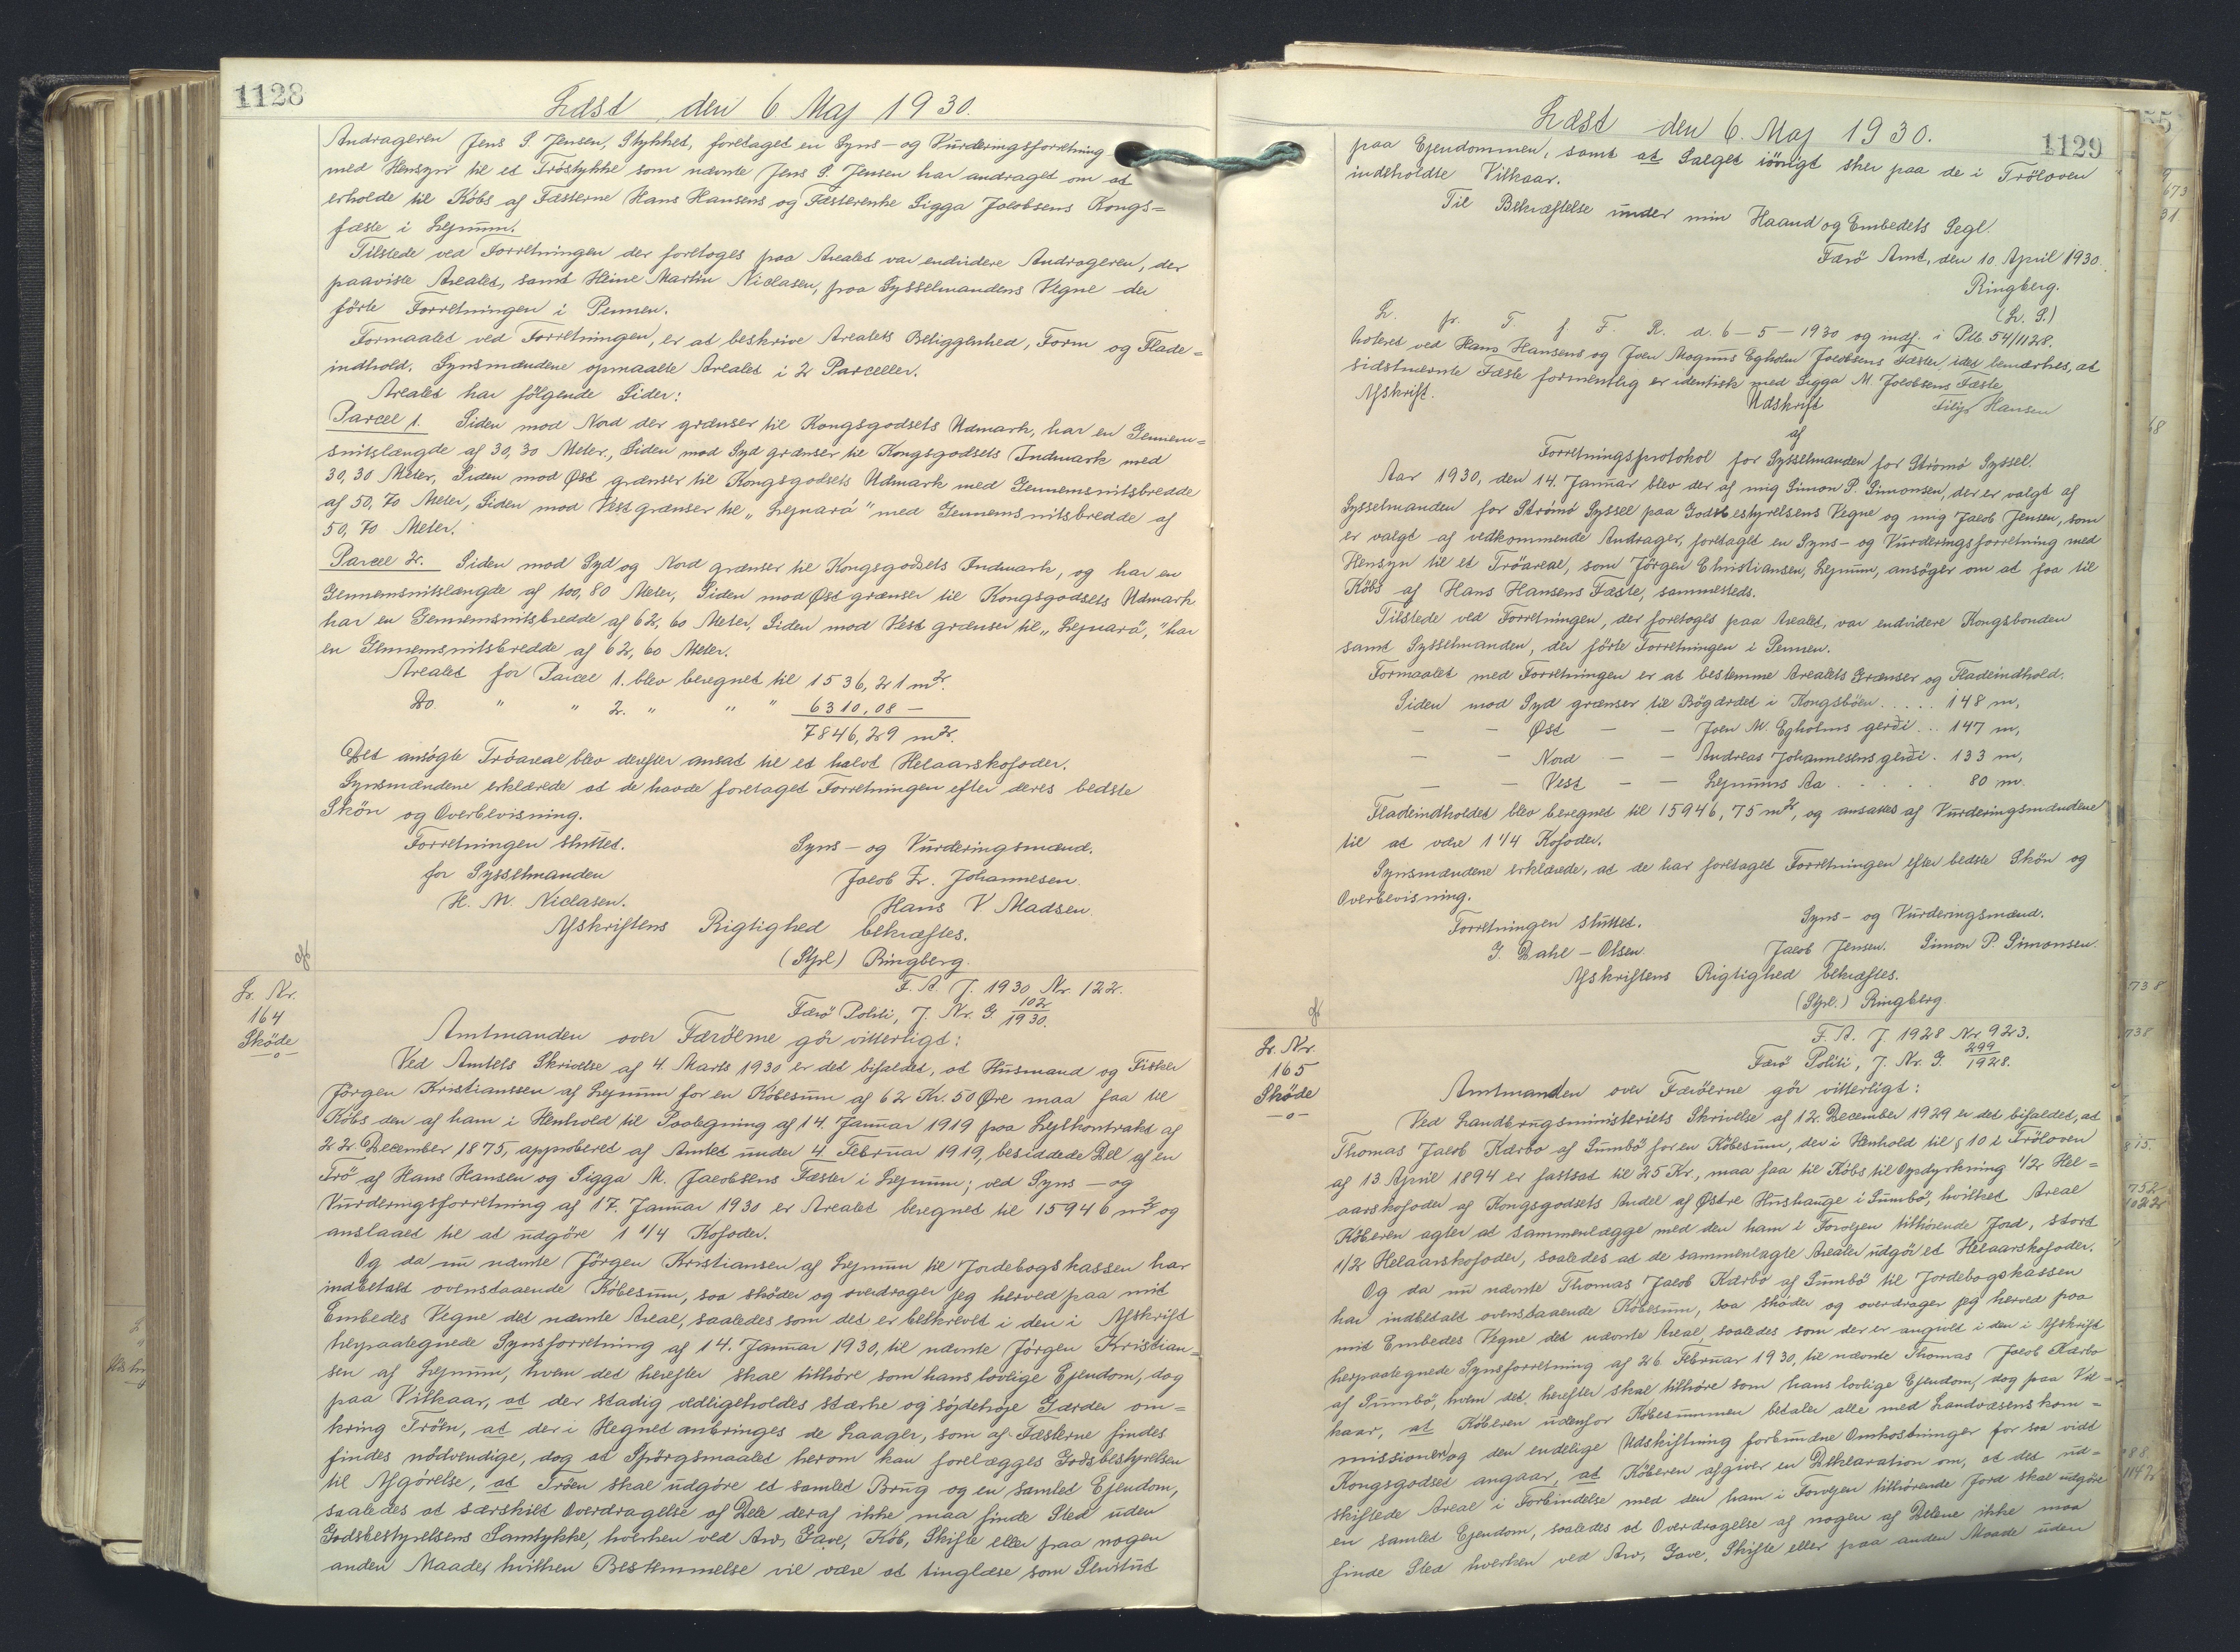 1128
Læst den 6 Maj 1930.
Andrageren Jens S. Jensen, Stykket, foretaget en Syns- og Vurderingsforretning
med Hensyn til et Tröstykke som nævnte Jens S. Jensen har andraget om at
erholde til Købs af Fæsterne Hans Hansens og Fæsterenke Sigga Jacobsens Kongs=
fæste i Lejnum.
Tilstede ved Forretningen der foretoges paa Arealet var endvidere Andrageren, der
paaviste Arealet, samt Heine Martin Niclasen, paa Sysselmandens Vegne der
förte Forretningen i Pennen.
Formaalet ved Forretningen, er at beskrive Arealets Beliggenhed, Form og Flade=
indhold. Synsmændene opmaalte Arealet i 2 Parceller.
Arealet har fölgende Sider:
Parcel 1. Siden mod Nord der grænser til Kongsgodsets Udmark, har en Gennem=
snitslængde af 30,30 Meter, Siden mod Syd grænser til Kongsgodsets Indmark med
30,30 Meter, Siden mod Øst grænser til Kongsgodsets Udmark med Gennemsnitsbredde
af 50,70 Meter, Siden mod Vest grænser til "Lejnará" med Gennemsnitsbredde af
50,70 Meter.
Parcel 2. Siden mod Syd og Nord grænser til Kongsgodsets Indmark, og har en
Gennemsnitslængde af 100,80 Meter, Siden mod Øst grænser til Kongsgodsets Udmark
har en Gennemsnitsbredde af 62,60 Meter, Siden mod Vest grænser til "Lejnará," har
en Gennemsnitsbredde af 62,60 Meter.
Arealet for Parcel 1. blev beregnet til 1536,21 m².
Do. " " 2. " " " 6310,08 -
7846,29 m².
Det ansögte Tröareal blev derefter ansat til et halvt Helaarskofoder.
Synsmændene erklærede at de havde foretaget Forretningen efter deres bedste
Skön og Overbevisning.
Forretningen sluttet. Syns- og Vurderingsmænd.
for Sysselmanden Jacob Fr. Johannesen.
H. M. Niclasen. Hans V. Madsen.
Afskriftens Rigtighed bekræftes.
(Stpl) Ringberg.
F. A. J. 1930 Nr. 122.
Færö Politi, J. Nr. G. 102/1930.
L. Nr.
164
Sköde
-o-
Amtmanden over Færöerne gör vitterligt:
Ved Amtets Skrivelse af 4. Marts 1930 er det bifaldet, at Husmand og Fisker
Jörgen Kristianssen af Lejnum for en Köbesum af 62 Kr. 50 Øre maa faa til
Købs den af ham i Henhold til Paategning af 14. Januar 1919 paa Lejekontrakt af
22 December 1875, approberet af Amtet under 4. Februar 1919, besiddede Del af en
Trö af Hans Hansen og Sigga M. Jacobsens Fæster i Lejnum; ved Syns- og
Vurderingsforretning af 17. Januar 1930 er Arealet beregnet til 15946 m² og
anslaaet til at udgöre 1 1/4 Kofoder.
Og da nu nævnte Jörgen Kristiansen af Lejnum til Jordebogskassen har
indbetalt ovenstaaende Köbesum, saa sköder og overdrager jeg herved paa mit
Embedes Vegne det nævnte Areal, saaledes som det er beskrevet i den i Afskrift
herpaategnede Synsforretning af 14. Januar 1930, til nævnte Jörgen Kristian=
sen af Lejnum, hvem det herefter skal tilhöre som hans lovlige Ejendom, dog
paa Vilkaar, at der stadig vedligeholdes stærke og sôjdehöje Gærder om=
kring Tröen, at der i Hegnet anbringes de Laager, som af Fæsterne findes
findes nödvendige, dog at Spörgsmaalet herom kan forelægges Godsbestyrelsen
til Afgörelse, at Tröen skal udgöre et samlet Brug og en samlet Ejendom,
saaledes at særskilt Overdragelse af Dele deraf ikke maa finde Sted uden
Godsbestyrelsens Samtykke, hverken ved Arv, Gave, Köb, Skifte eller paa nogen
anden Maade, hvilken Bestemmelse vil være at tinglæse som Servitut
1129
Læst den 6. Maj 1930.
paa Ejendommen, samt at Salget iövrigt sker paa de i Tröloven
indeholdte Vilkaar.
Til Bekræftelse under min Haand og Embedets Segl.
Færö Amt, den 10 April 1930.
Ringberg.
(L. S.)
L. fr. T. f. F. R. d. 6-5-1930 og indf. i Ptb. 54/1128.
Noteret ved Hans Hansens og Joen Magnus Egholm Jacobsens Fæster, idet bemærkes, at
sidstnævnte Fæste formentlig er identisk med Sigga M. Jacobsens Fæste.
Afskrift. Filip Hansen
Udskrift
af
Forretningsprotokol for Sysselmanden for Strömö Syssel.
Aar 1930, den 14. Januar blev der af mig Simon P. Simonsen, der er valgt af
Sysselmanden for Strömö Syssel paa Godsbestyrelsens Vegne og mig Jacob Jensen, som
er valgt af vedkommende Andrager, foretaget en Syns- og Vurderingsforretning med
Hensyn til et Tröareal, som Jörgen Christiansen, Lejnum, ansöger om at faa til
Købs af Hans Hansens Fæste, sammesteds.
Tilstede ved Forretningen, der foretoges paa Arealet, var endvidere Kongsbonden
samt Sysselmanden, der förte Forretningen i Pennen.
Formaalet med Forretningen er at bestemme Arealets Grænser og Fladeindhold.
Siden mod Syd grænser til Bögærdet i Kongsböen ..... 148 m,
- - Øst - - Joen M. Egholms gerði ... 147 m,
- - Nord - - Andreas Johannesens gerði . 133 m,
- - Vest - - Lejnums Aa ..... 80 m.
Fladeindholdet blev beregnet til 15946,75 m², og ansattes af Vurderingsmændene
til at være 1 1/4 Kofoder.
Synsmændene erklærede, at de har foretaget Forretningen efter bedste Skön og
Overbevisning.
Forretningen sluttet. Syns- og Vurderingsmænd.
J. Dahl-Olsen. Jacob Jensen. Simon P. Simonsen.
Afskriftens Rigtighed bekræftes.
(Stpl.) Ringberg
F. A. J. 1928 Nr. 923.
Færö Politi, J. Nr. G. 299/1928.
L. Nr.
165
Sköde
-o-
Amtmanden over Færöerne gör vitterligt:
Ved Landbrugsministeriets Skrivelse af 12. December 1929 er det bifaldet, at
Thomas Jacob Kærbo af Sumbö for en Köbesum, der i Henhold til § 10 i Tröloven
af 13 April 1894 er fastsat til 25 Kr., maa faa til Købs til Opdyrkning 1/2 Hel=
aarskofoder af Kongsgodsets Andel af Østre Hushauge i Sumbö, hvilket Areal
Köberen agter at sammenlægge med den ham i Forvejen tilhörende Jord, stort
1/2 Helaarskofoder, saaledes at de sammenlagte Arealer udgör et Helaarskofoder.
Og da nu nævnte Thomas Jacob Kærbo af Sumbö til Jordebogskassen
har indbetalt ovenstaaende Köbesum, saa sköder og overdrager jeg herved paa
mit Embedes Vegne det nævnte Areal, saaledes som der er angivet i den i Afskrift
herpaategnede Synsforretning af 26. Februar 1930, til nævnte Thomas Jacob Kærbo
af Sumbö, hvem det herefter skal tilhöre som hans lovlige Ejendom, dog paa Vil=
kaar, at Köberen udenfor Köbesummen betaler alle med Landvæsenskom=
missioner og den endelige Udskiftning forbundne Omkostninger for saa vidt
Kongsgodset angaar, at Köberen afgiver en Deklaration om, at det ud=
skiftede Areal i Forbindelse med den ham i Forvejen tilhörende Jord skal udgöre
en samlet Ejendom, saaledes at Overdragelse af nogen af Delene ikke maa
finde Sted hverken ved Arv, Gave, Skifte eller paa anden Maade uden